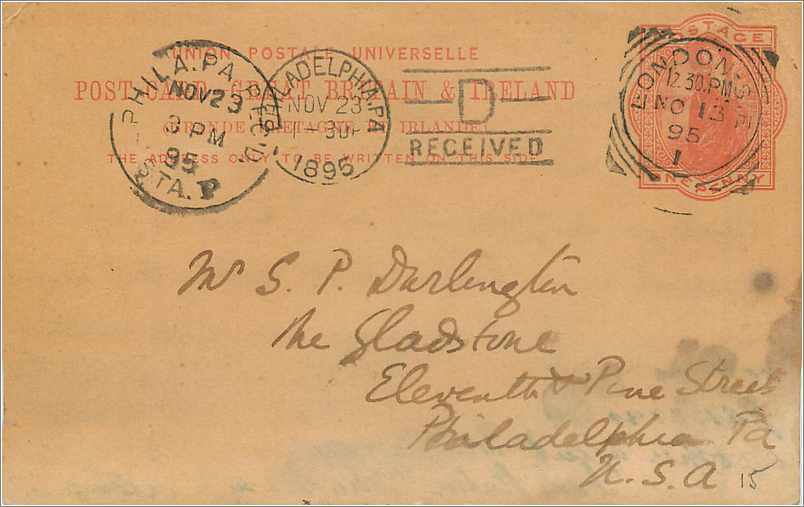 UNION POSTALE UNIVERSELLE
POST CARD GREAT BRITAIN & IRELAND
GRANDE BRETAGNE IRLANDE
THE ADDRESS ONLY TO BE WRITTEN ON THIS SIDE
PHILA. PA. REC'D.
NOV 23
3 PM
95
STA. P
PHILADELPHIA, PA
NOV 23
1895
D
RECEIVED
POSTAGE
ONE PENNY
LONDON. S
12.30. PM
NO 13
95
1
Mr S. P. Darlington
The Gladstone
Eleventh & Pine Street
Philadelphia Pa
U.S.A
15